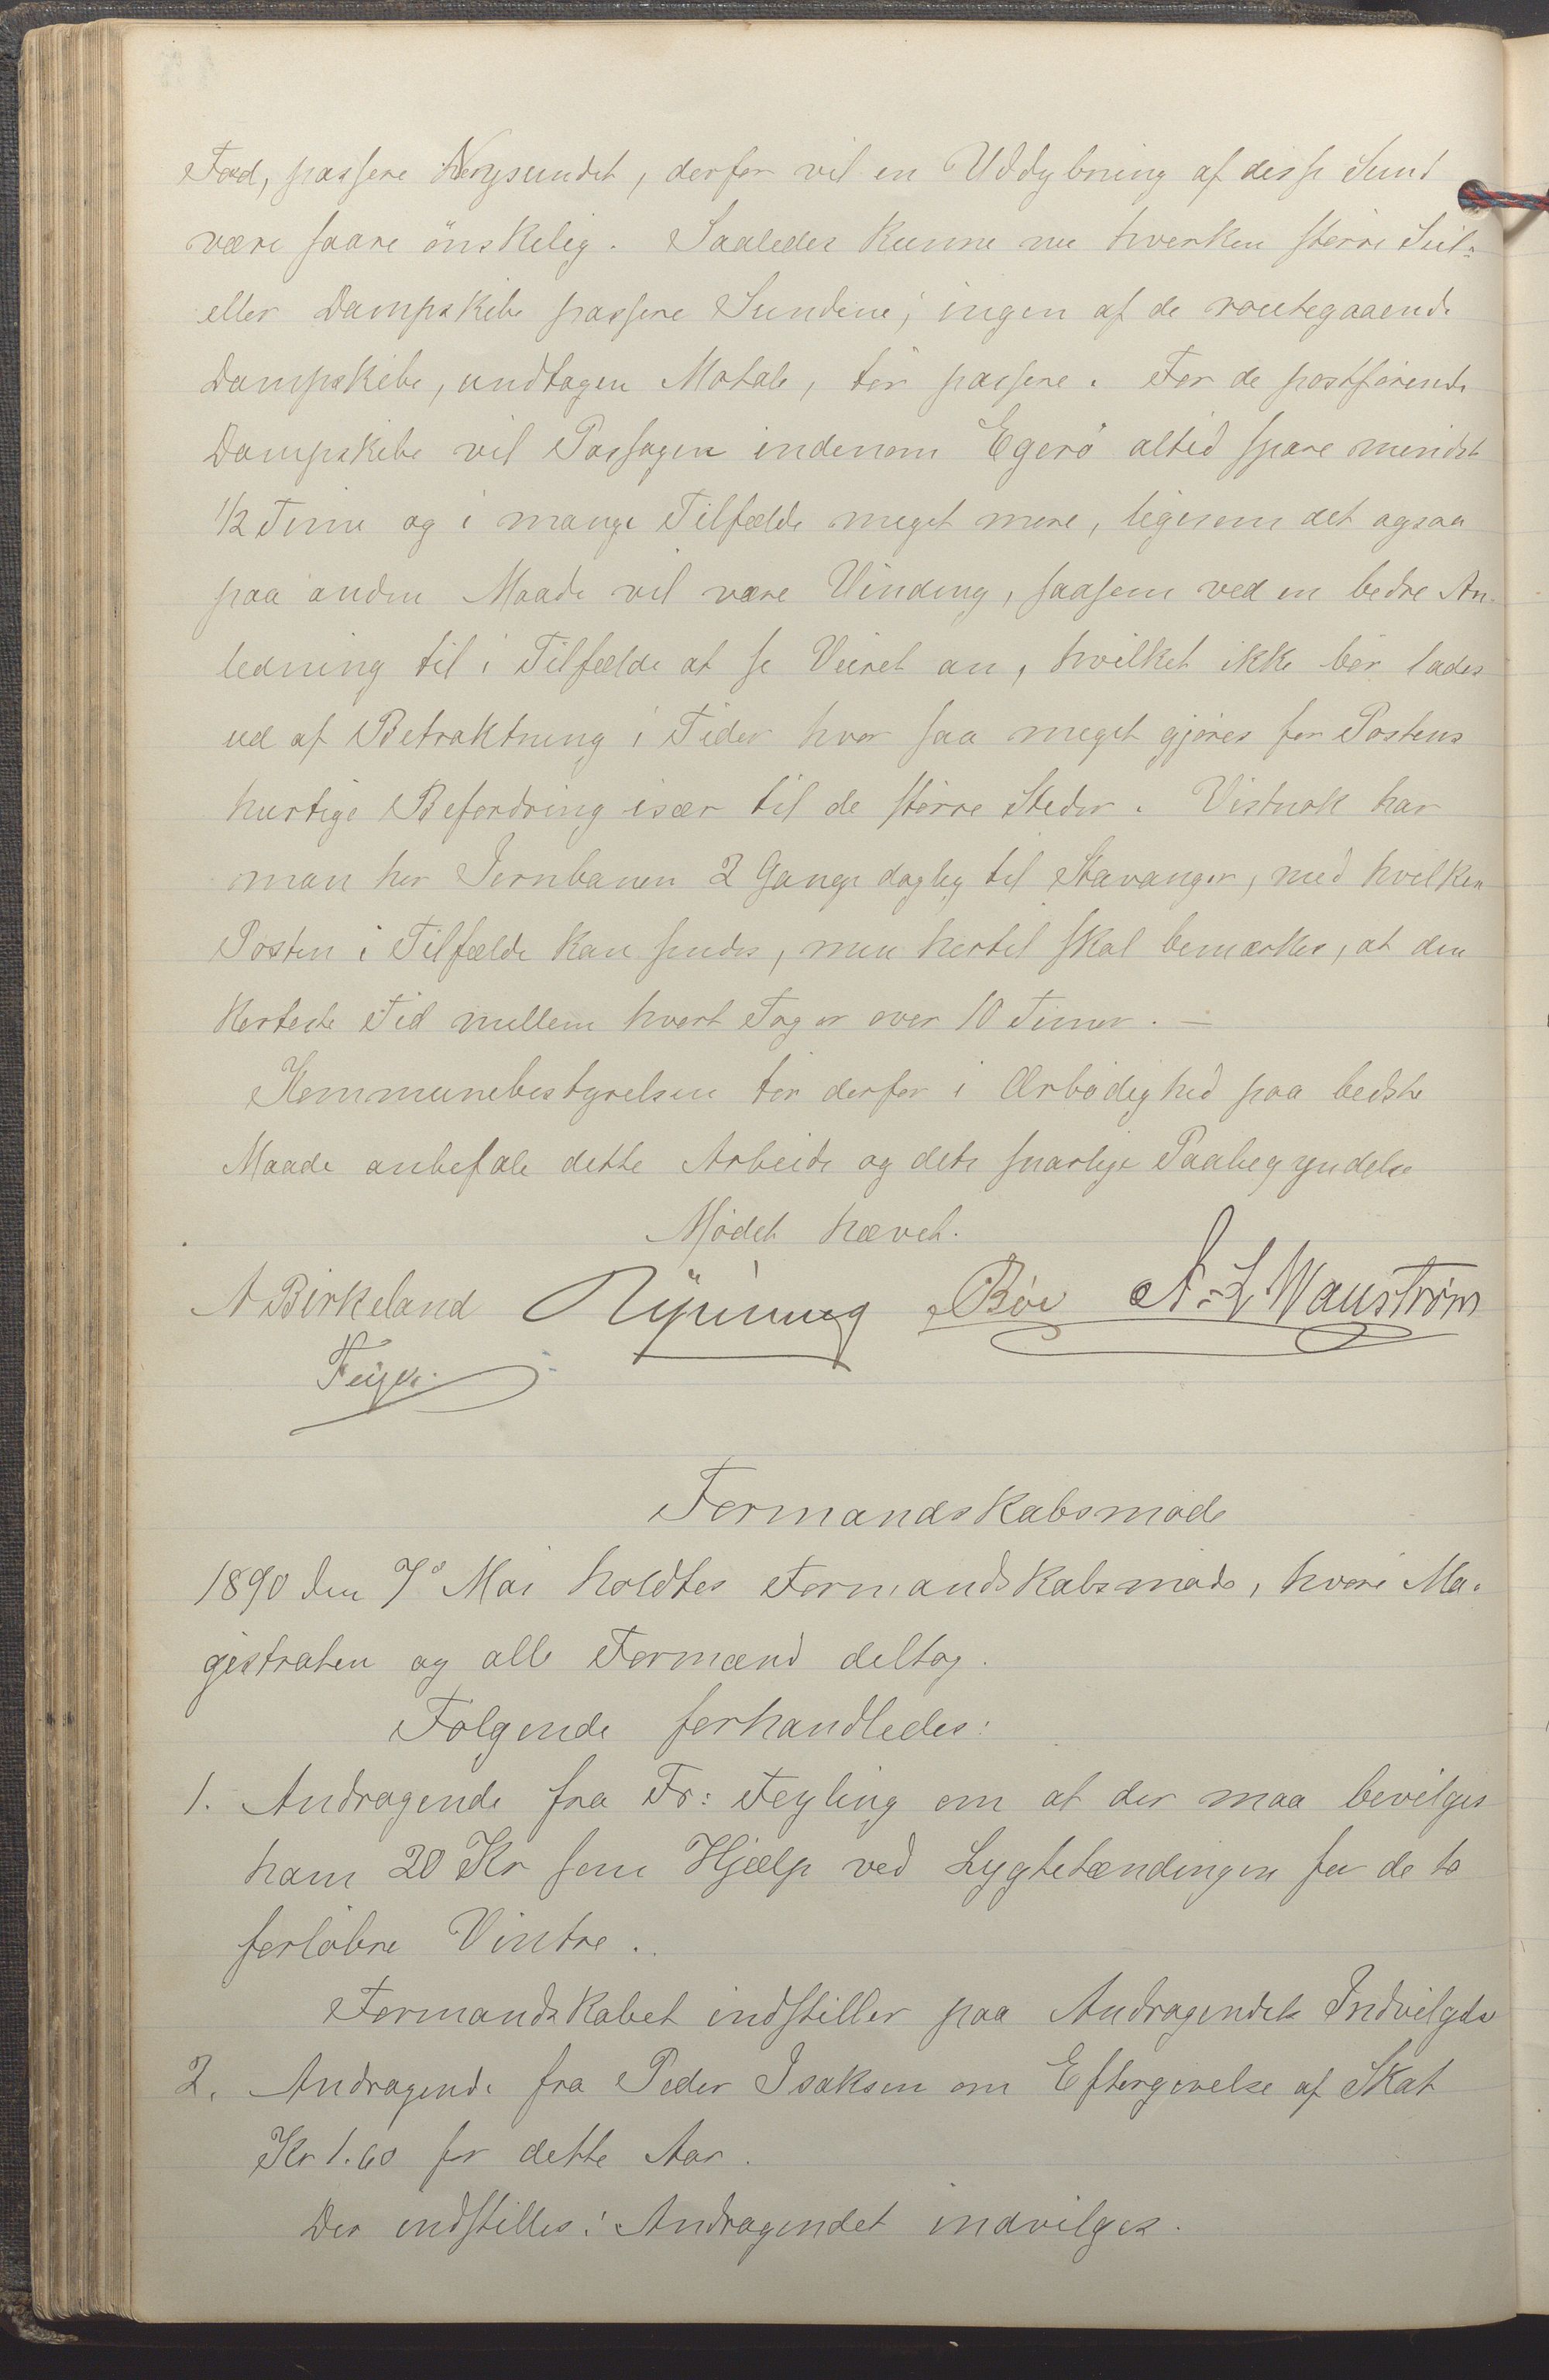 Fod, passere Nysundet, derfor vil en Uddybning af disse Sund
være saare önskelig. Saaledes kunne nu hverken större Seil-
eller Dampskibe passere Sundene; ingen af de routegaaende
Dampskibe, undtagen Motala, tör passere. For de postförende
Dampskibe vil Passagen indenom Egerö altid spare mindst
1/2 Time og i mange Tilfælde meget mere, ligesom det ogsaa
paa anden Maade vil være Vinding, saasom ved en bedre An-
ledning til i Tilfælde at se Veiret an, hvilket ikke bör lades
ud af Betraktning i Tider hvor saa meget gjöres for Postens
hurtige Befordring især til de större Steder. Vistnok har
man her Jernbanen 2 Gange daglig til Stavanger, med hvilken
Posten i Tilfælde kan sendes, men hertil skal bemærkes, at den
korteste Tid mellem hvert Tog er over 10 Timer. —
Kommunebestyrelsen tör derfor i Ærbödighed paa bedste
Maade anbefale dette Arbeide og dets snarlige Paabegyndelse
Mödet hævet.
A Birkeland Rÿnning Bøe A. L Wanström
Feyer.
Formandskabsmöde
1890 den 7de Mai holdtes Formandskabsmöde, hvori Ma-
gistraten og alle Formænd deltog.
Fölgende forhandledes:
1. Andragende fra Fr: Feyling om at der maa bevilges
ham 20 Kr som Hjælp ved Lygtetændingen for de to
forlöbne Vintre.
Formandskabet indstiller paa Andragendets Indvilgelse
2. Andragende fra Peder Isaksen om Eftergivelse af Skat
Kr 1.60 for dette Aar.
Der indstilles: Andragendet indvilges.